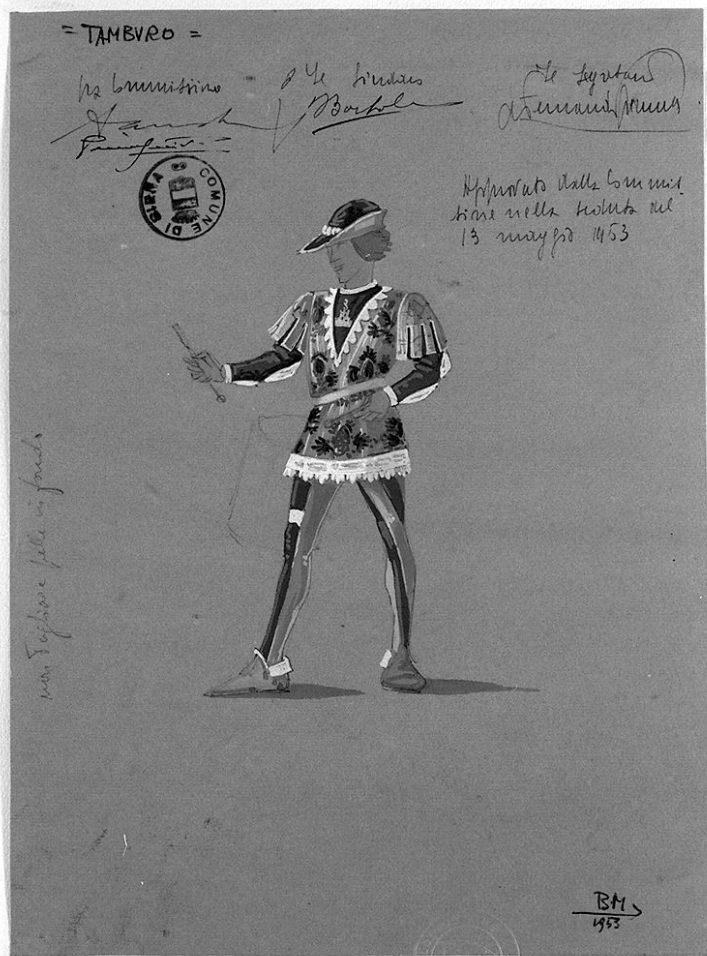 = TAMBVRO =
La Commissione
Il Sindaco
Il Segretario
COMUNE DI SIENA
Approvato dalla Commis
sione nella seduta del
13 maggio 1953
non tagliare pelle in fondo
BM
1953